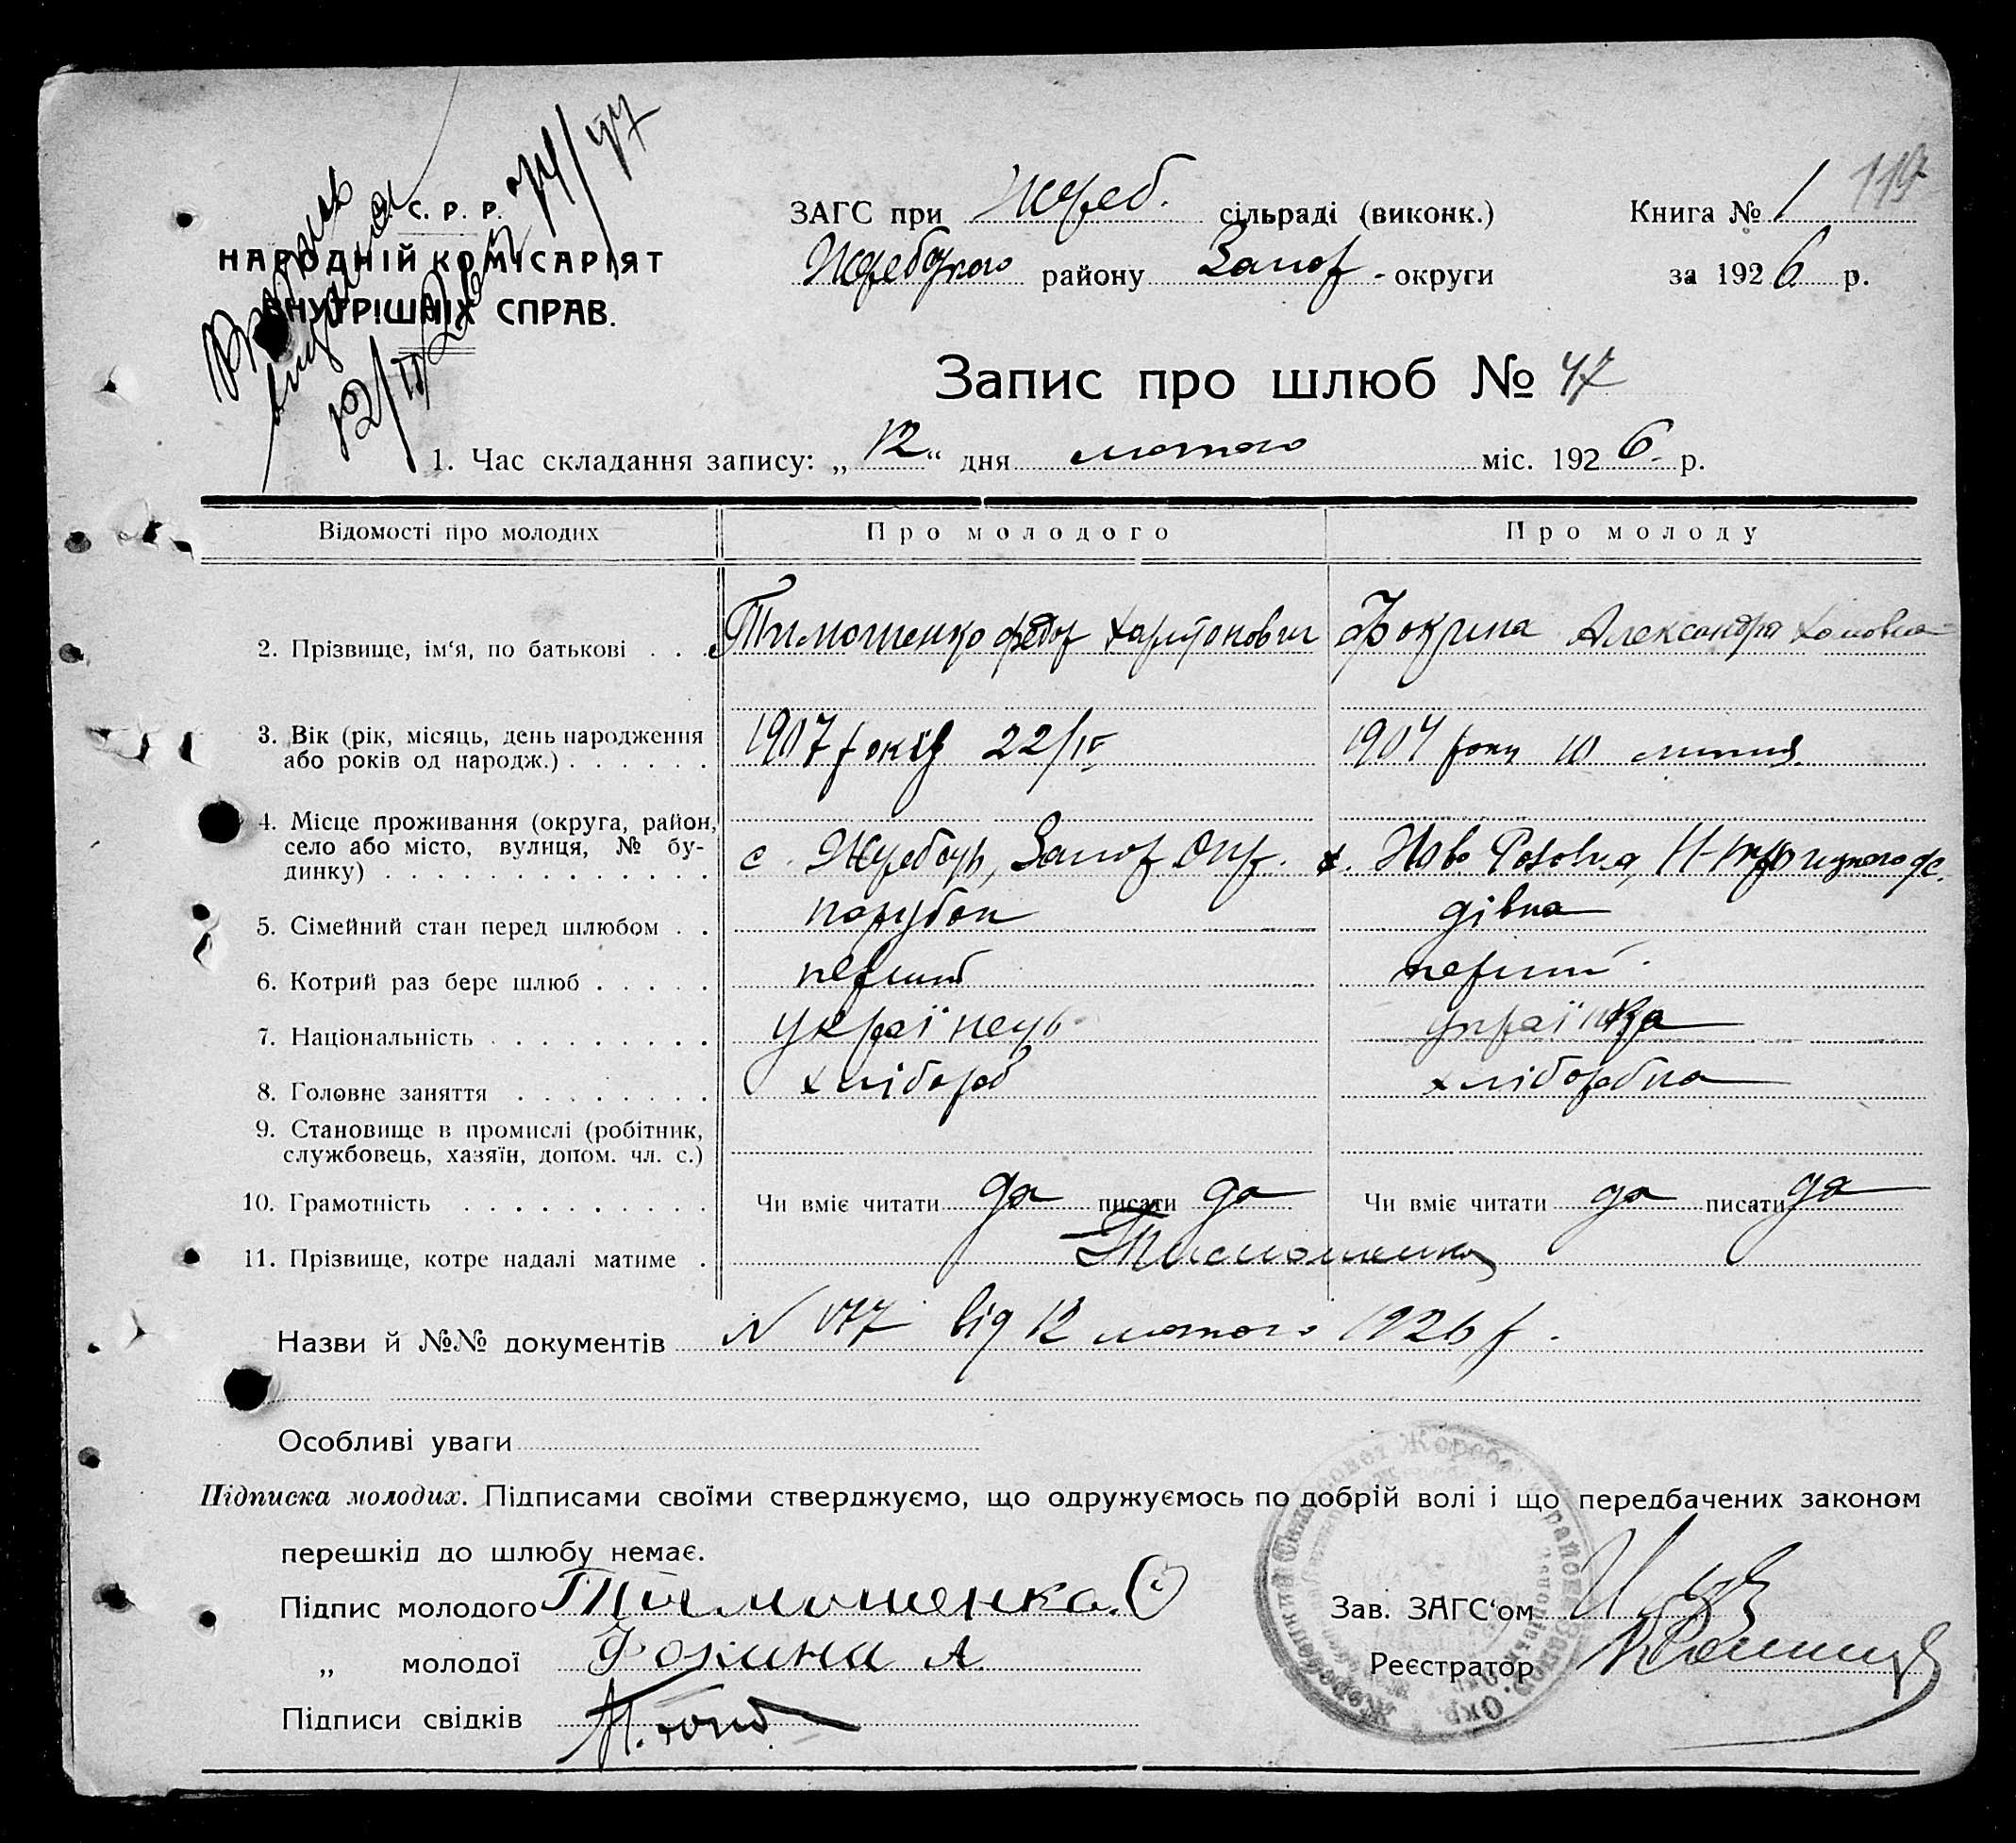 119
С. Р. Р.
НАРОДНІЙ КОМІСАРІЯТ
ВНУТРІШНІХ СПРАВ.
ЗАГС при Жереб. сільраді (виконк.)
Книга № 1
Жеребецкого району Запор - округи
за 1926 р.
Запис про шлюб № 47
1. Час складання запису: „ 12 “ дня лютого міс. 1926 р.
Відомості про молодих
Про молодого
Про молоду
2. Прізвище, ім‘я, по батькові . . .
Тимошенко Федор Харитонович
Фокрина Александра
3. Вік (рік, місяць, день народження
або років од народж.) . . . . . .
1907 років 22/IV
1904 року 10 липня
4. Місце проживання (округа, район,
село або місто, вулиця, № бу-
динку) . . . . . . . . . . . . .
с. Жеребець, Запор Окр.
х. Ново
5. Сімейний стан перед шлюбом . .
парубок
дівка
6. Котрий раз бере шлюб . . . . .
перший
перший
7. Національність . . . . . . . . .
українець
українка
8. Головне заняття . . . . . . . .
хлібороб
хлібробка
9. Становище в промислі (робітник,
службовець, хазяїн, допом. чл. с.)
10. Грамотність . . . . . . . . . .
Чи вміє читати да писати да
Чи вміє читати да писати да
11. Прізвище, котре надалі матиме .
Тимошенко
Назви й №№ документів N 177 від 12 лютого 1926 р.
Особливі уваги
Підписка молодих. Підписами своїми стверджуємо, що одружуємось по добрій волі і що передбачених законом
перешкід до шлюбу немає.
Підпис молодого Тимошенко.
„ молодої Фокина А.
Підписи свідків
Зав. ЗАГС‘ом
Реєстратор